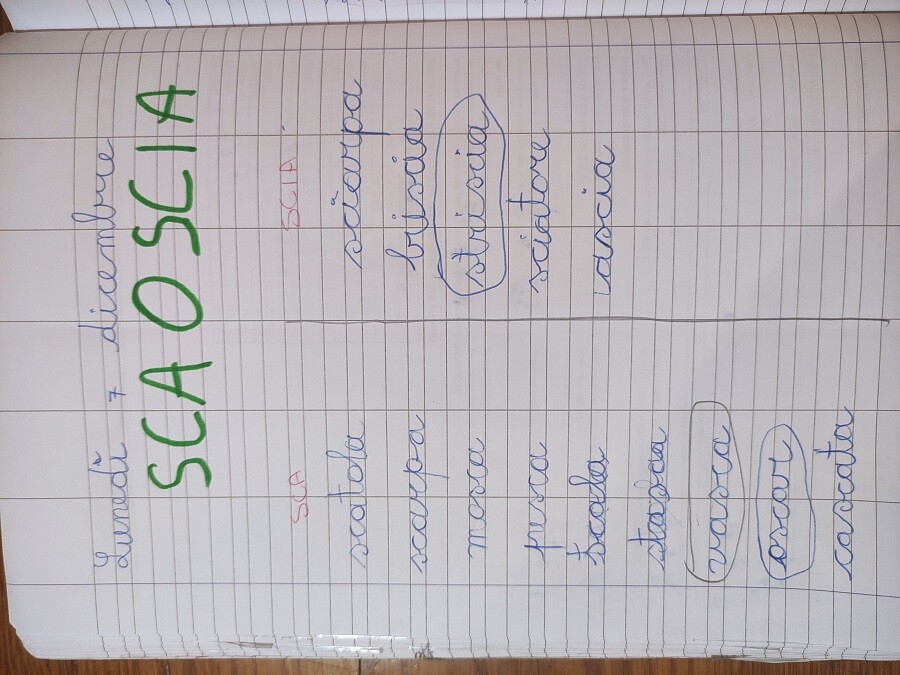 Lunedì 7 dicembre
SCA O SCIA
SCA
SCIA
scatola
sciarpa
scarpa
biscia
mosca
striscia
pesca
sciatore
scala
ascia
tasca
vasca
oscar
cascata